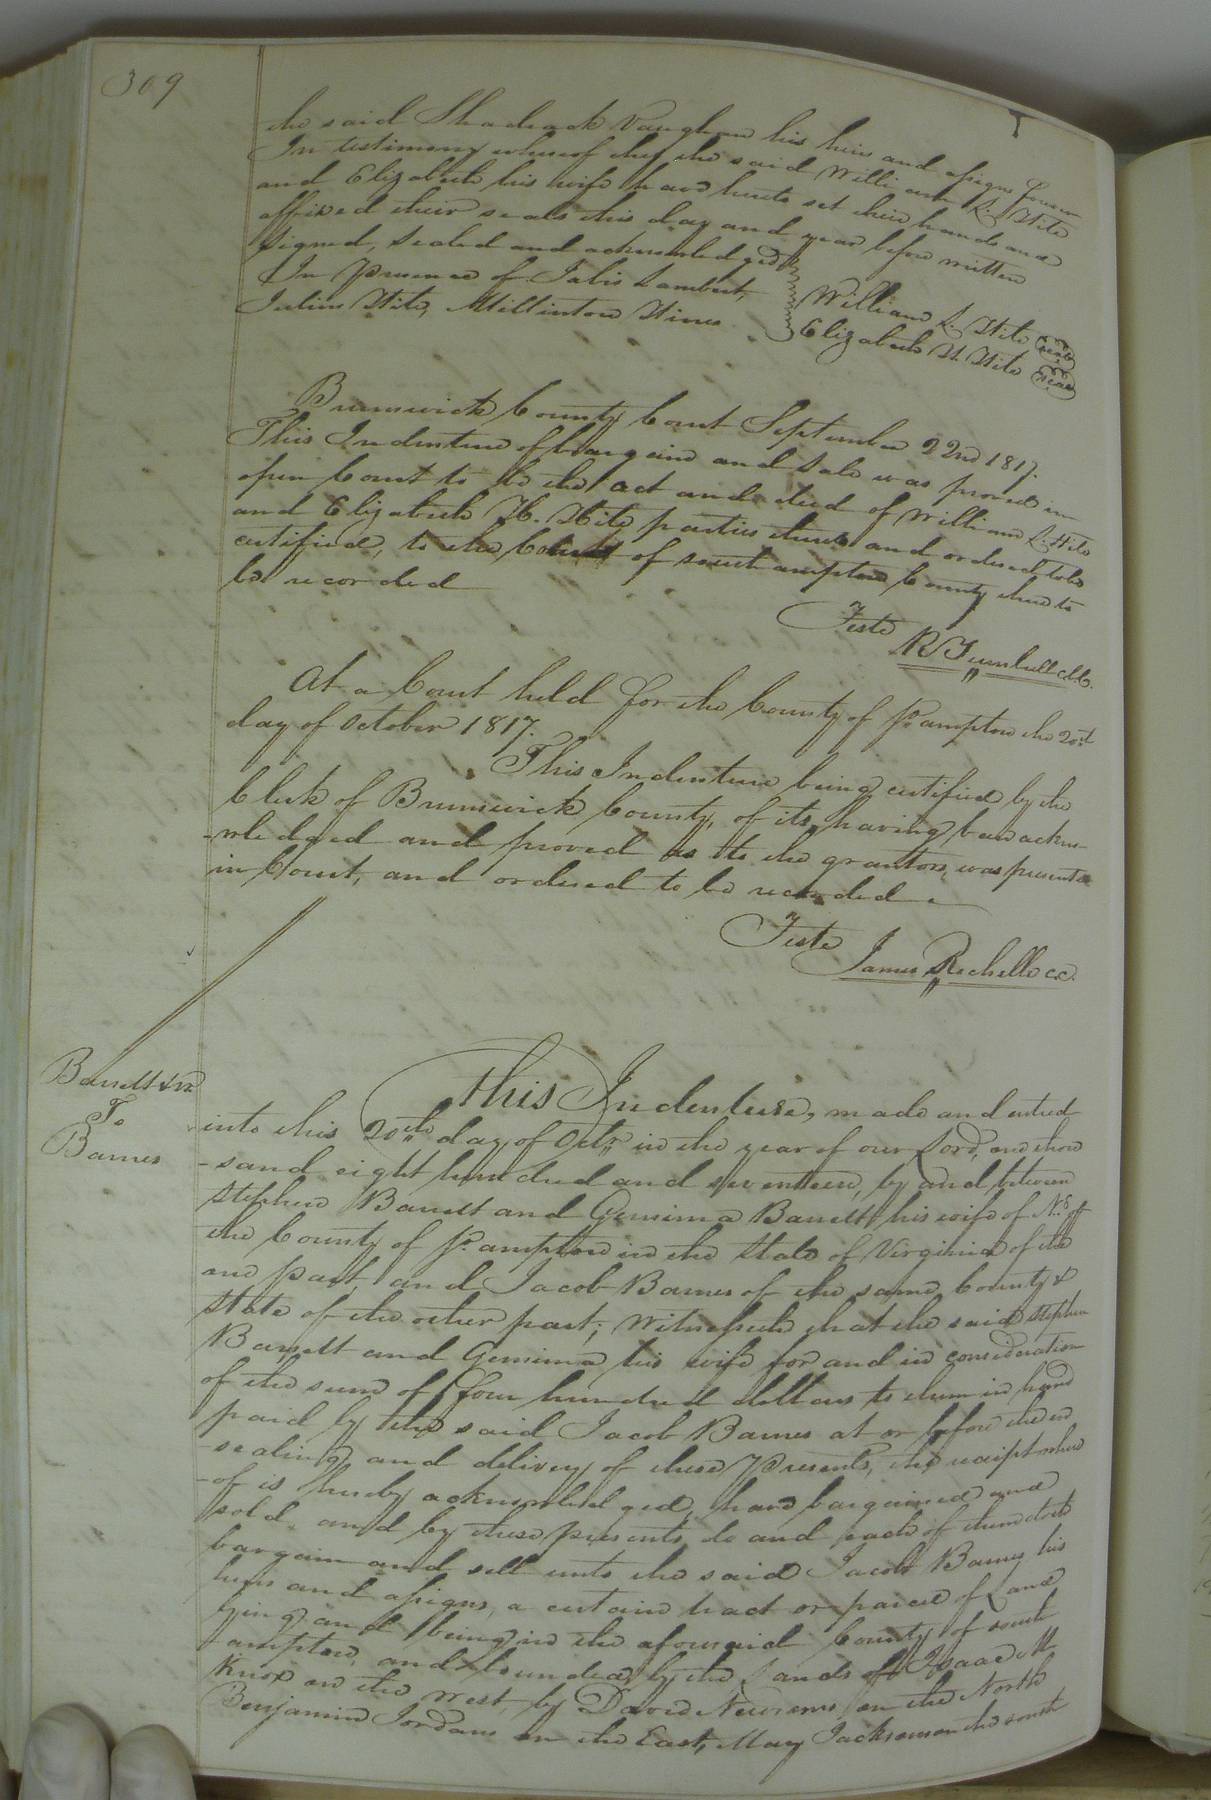 309
the said Shadrack Vaughan his heirs and assigns forever
In testimony whereof they the said William L. Hite
and Elizabeth his wife have hunto set their hands and
affixed their seals this day and year before written
Signed, Sealed and acknowledged
In Presence of Jabis Lambert,
Julius Hite, Millinton Hines
William L. Hite (seal)
Elizabeth H. Hite (seal)
Brunswick County Court September 22nd 1817.
This Indenture of bargain and sale was proved in
open Court to be the act and deed of William L. Hite
and Elizabeth H. Hite parties thereto and ordered to be
certified, to the Court of southampton County there to
be recorded
Teste
R Turnbull c.B.C.
At a Court held for the County of So ampton the 20th
day of October 1817.
This Indenture being certified by the
Clerk of Brunswick County, of its having been acknow-
-wledged and proved as to the grantors, was presented
in Court, and ordered to be recorded
Teste
James Rochelle cc.
Barrett & ux
To
Barnes
This Indenture, made and entred
into this 20th day of Octr in the year of our Lord, one thou
-sand eight hundred and seventeen, by and between
Stephen Barrett and Gemima Barrett his wife of
the County of So ampton in the State of Virginia of the
one part, and Jacob Barnes of the same County &
State of the other part; Witnesseth that the said Stephen
Barrett and Gemima his wife for and in consideration
of the sum of four hundred dollars to them in hand
paid by the said Jacob Barnes at or before the en
-sealing and delivery of these Presents, the receipt where
-of is hereby acknowledged, have bargained and
sold, and by these presents do and each of them doth
bargain and sell unto the said Jacob Barnes his
heirs and assigns, a certain tract or parcel of Land
lying and being in the aforesaid County of south
-ampton, and bounded by the Lands of Isaac M
Knox on the West, by David Newsoms on the North
Benjamin Jordans on the East, May Jackson on the south